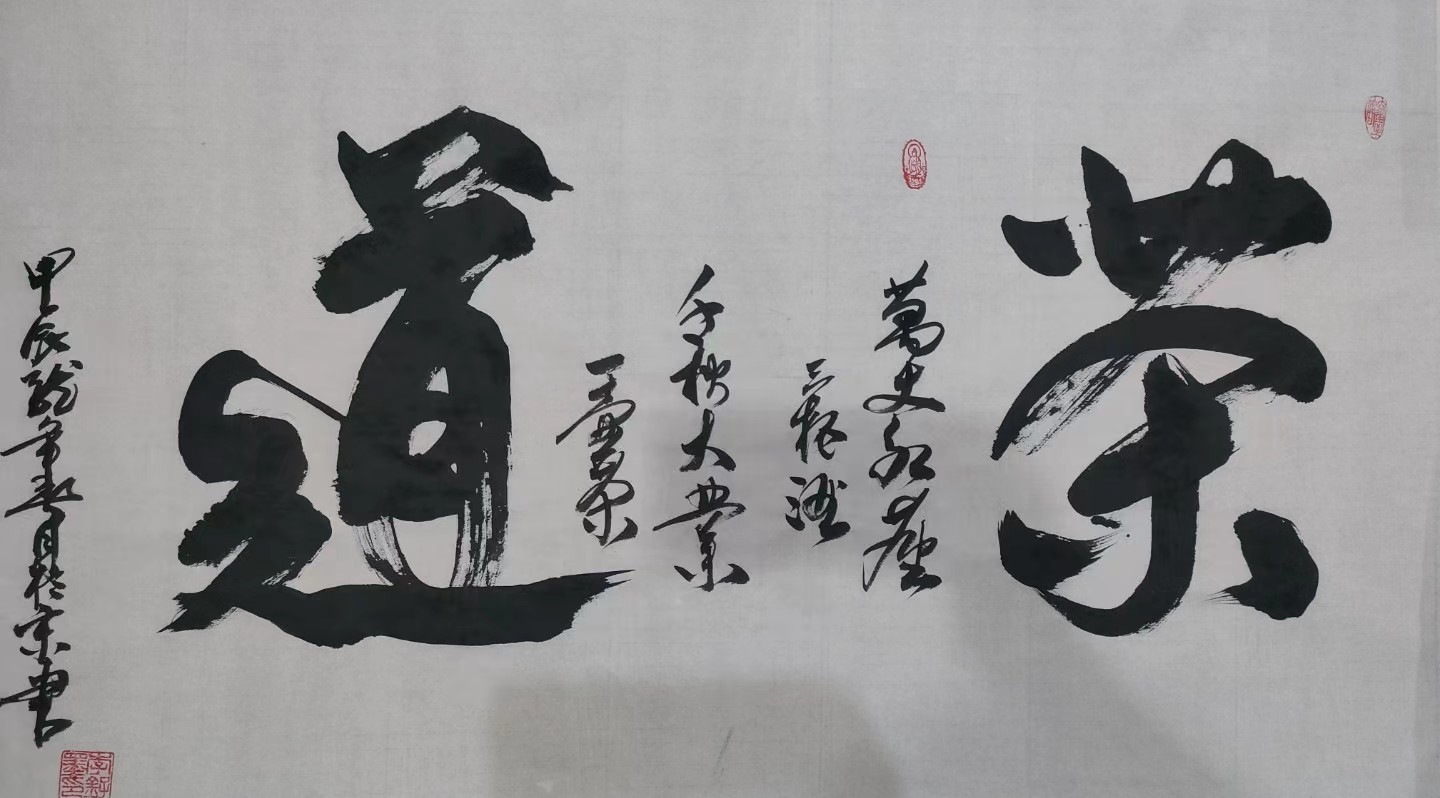 茶道
萬丈紅塵
三杯酒
千秋大業
一壺茶
甲辰龍年春月於京書